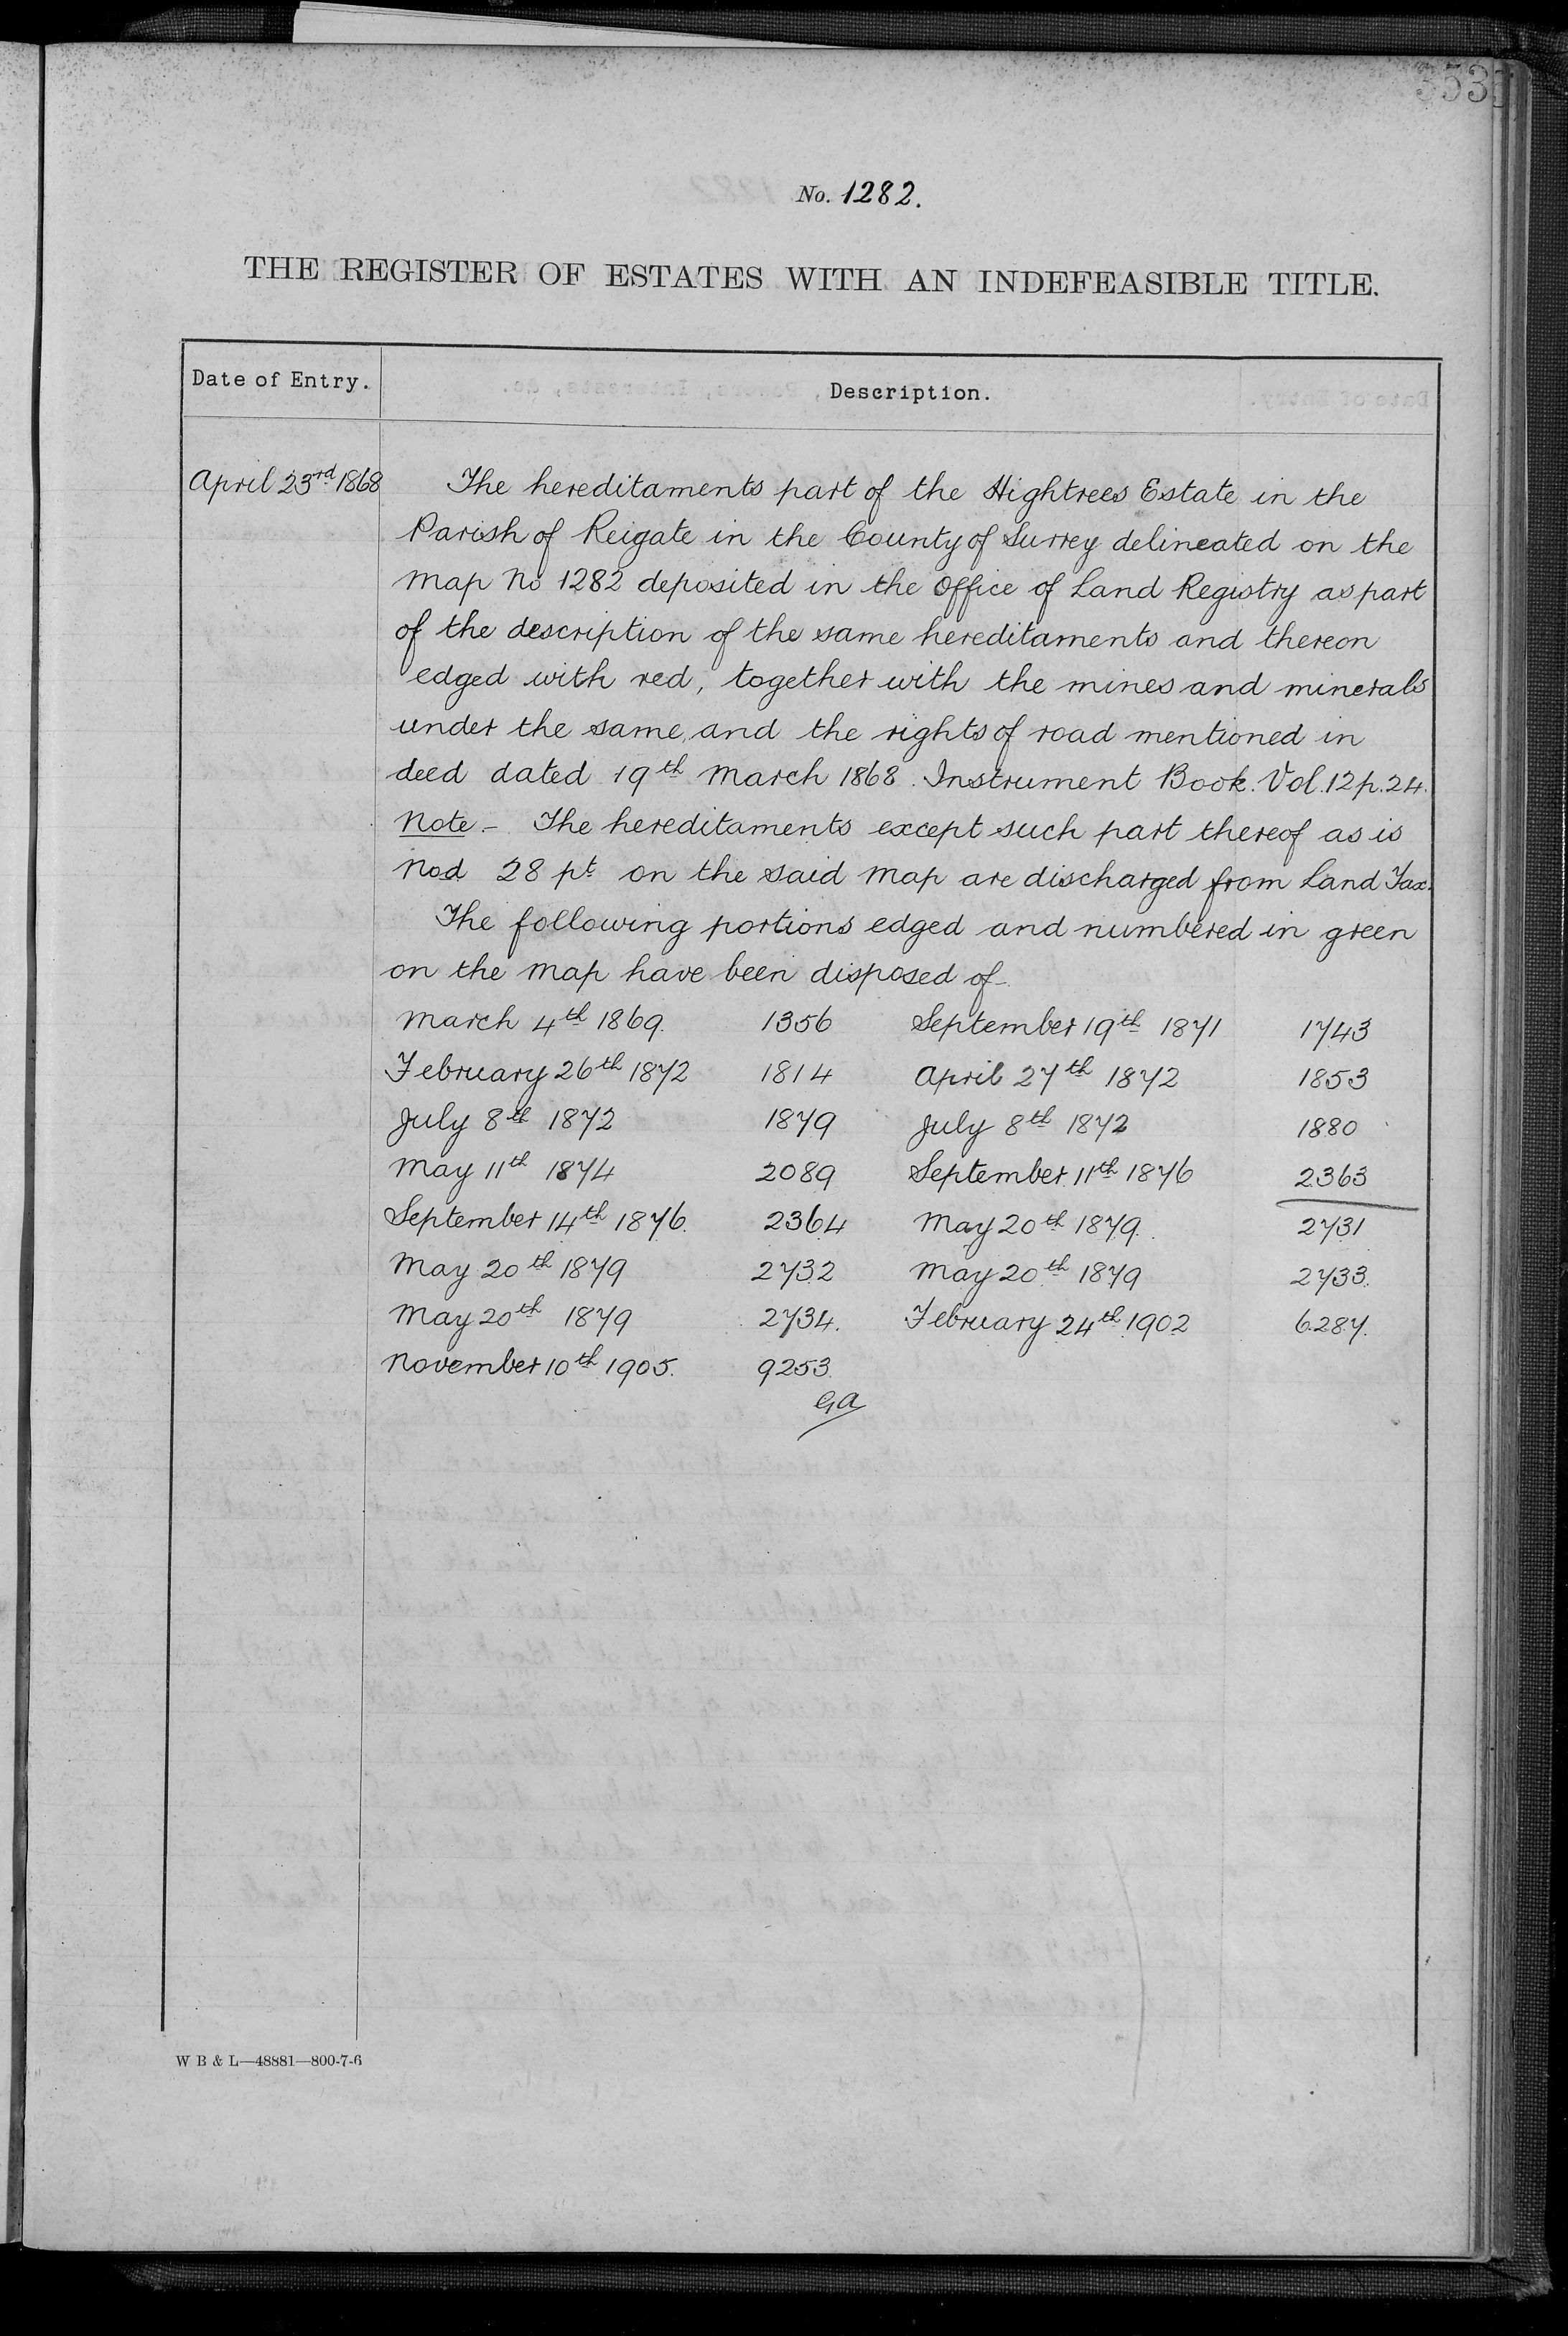 353
No. 1282.
THE REGISTER OF ESTATES WITH AN INDEFEASIBLE TITLE.
Date of Entry. Description.
April 23rd 1868 The hereditaments part of the Hightrees Estate in the
Parish of Reigate in the County of Surrey delineated on the
map No 1282 deposited in the Office of Land Registry as part
of the description of the same hereditaments and thereon
edged with red, together with the mines and minerals
under the same, and the rights of road mentioned in
deed dated 19th March 1868. Instrument Book. Vol. 12 p. 24.
Note - The hereditaments except such part thereof as is
Nod 28 pt on the said map are discharged from Land Tax.
The following portions edged and numbered in green
on the map have been disposed of -
March 4th 1869. 1356 September 19th 1871 1743
February 26th 1872 1814 April 27th 1872 1853
July 8th 1872 1879 July 8th 1872 1880
May 11th 1874 2089 September 11th 1876 2363
September 14th 1876. 2364 May 20th 1879. 2731
May 20th 1879 2732 May 20th 1879 2733.
May 20th 1879 2734. February 24th 1902 6287.
November 10th 1905. 9253.
GA
W B & L—48881—800-7-6